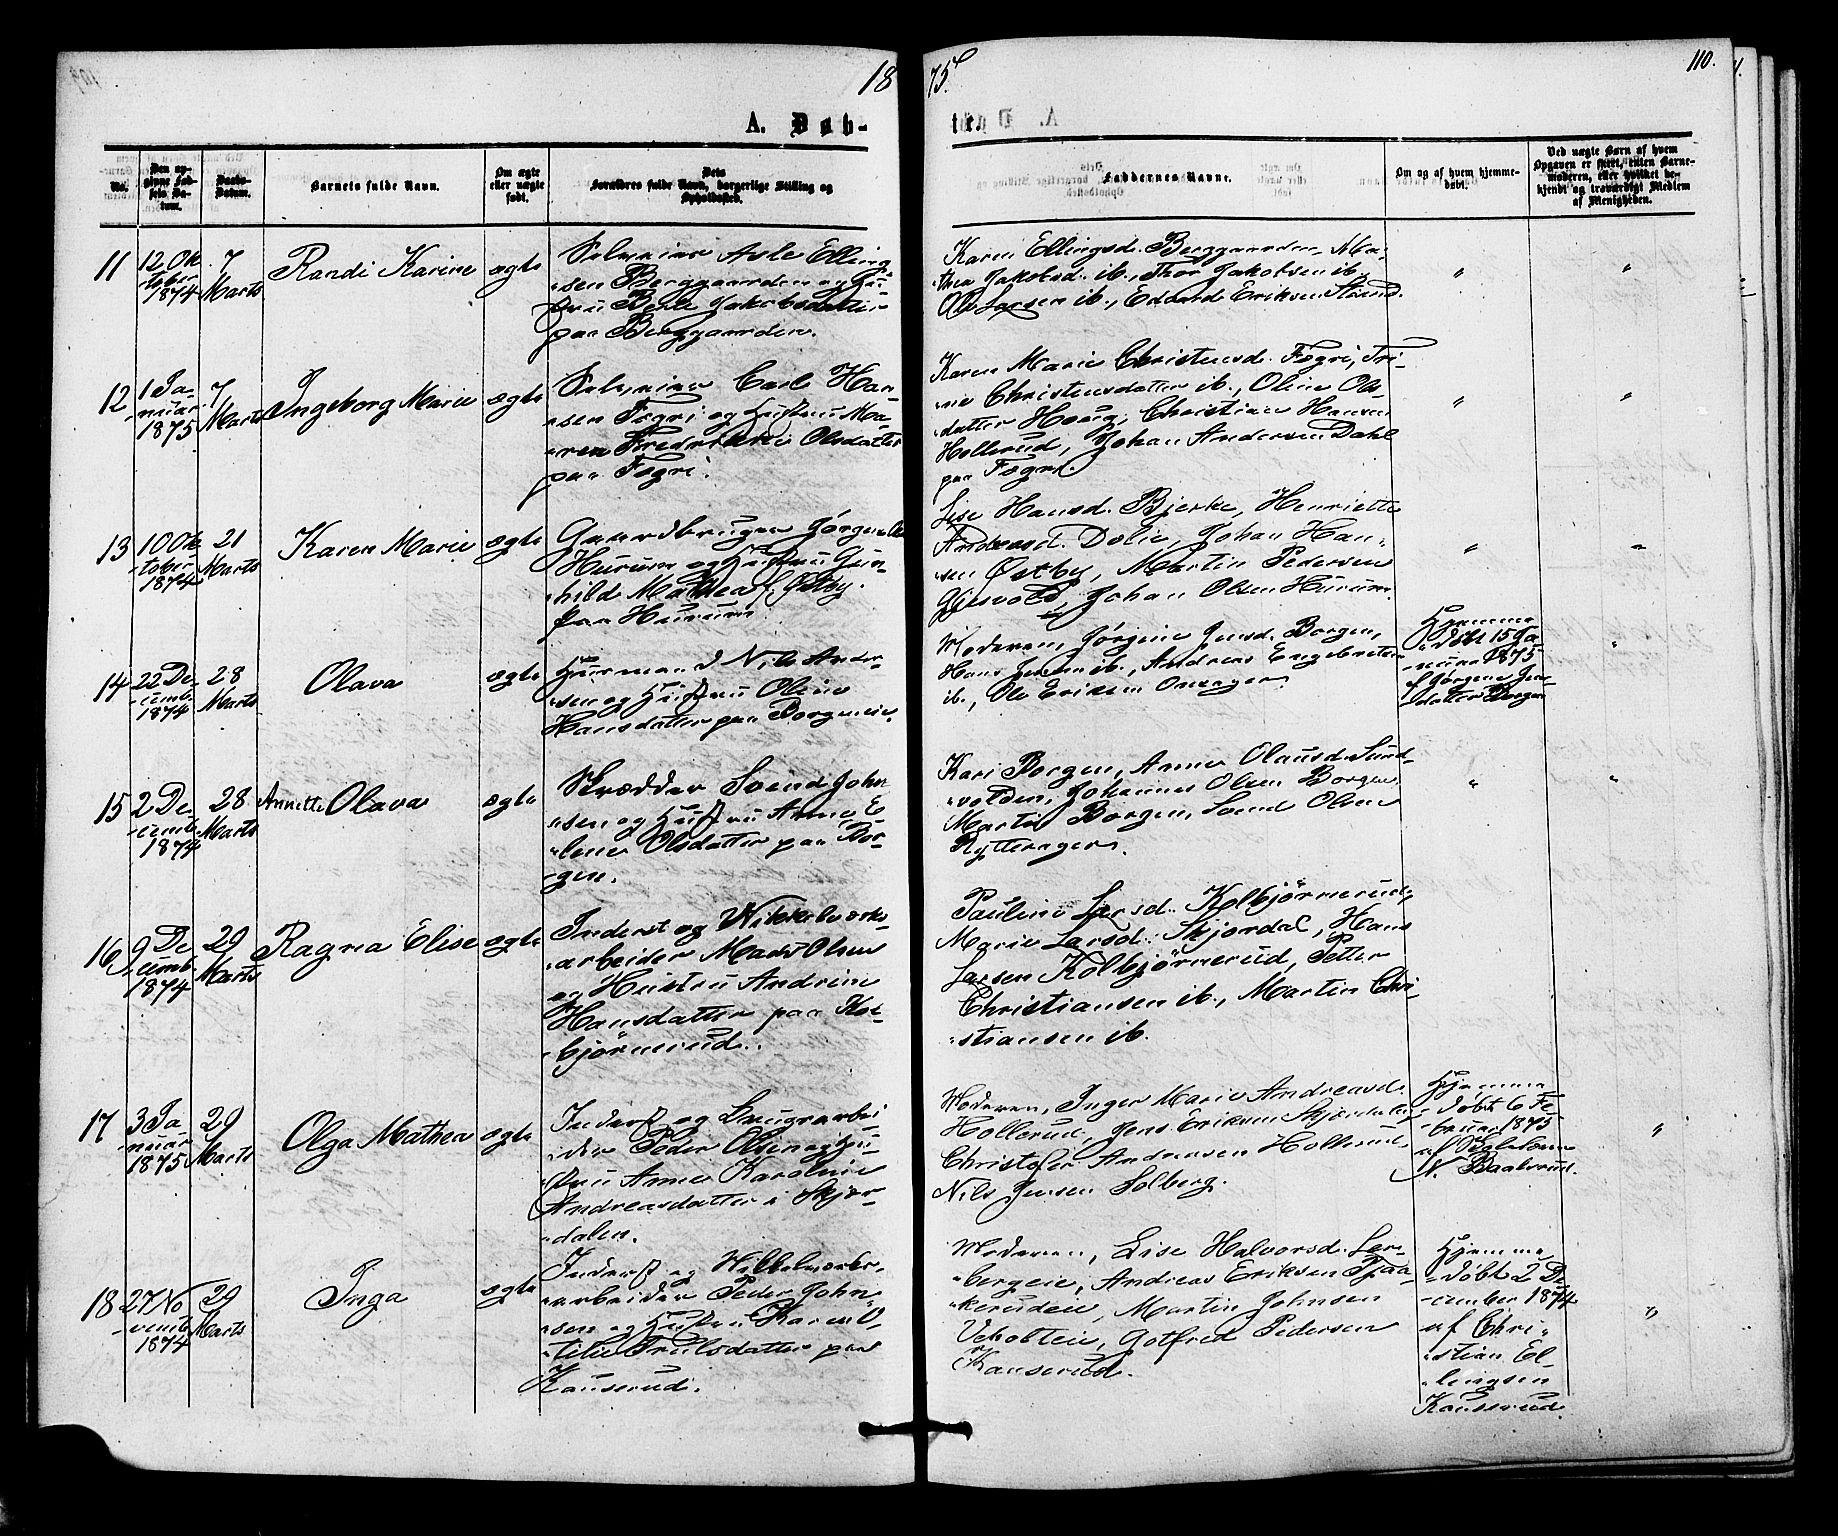 1875.
110.
A. Døbte.
No.
Den opgivne Fødsels Datum.
Daabs-Datum.
Barnets fulde Navn.
Om ægte eller uægte født.
Dets Forældres fulde Navn, borgerlige Stilling og Opholdssted.
Faddernes Navne.
Om og af hvem hjemmedøbt.
Ved uægte Børn af hvem Opgaven er skeet, enten Barnemoderen, eller hvilket bekjendt og troværdigt Medlem af Menigheden.
11
12 Ok-
-tober
1874
7
Marts
Randi Karine
ægte
Selveier Asle Elling-
-sen Berggaarden og Hu-
stru Jakobsdatter
paa Berggaarden.
Karen Ellingsd. Berggaarden, Ma-
-thea Jakobsd. ib., Thor Jakobsen ib.
Ole Larsen ib., Edvard Eriksen
"
"
12
1 Ja-
-nuar
1875
7
Marts
Ingeborg Marie
ægte
Selveier Carl Han-
-sen Fægri og Hustru Ma-
-ren Fredrikke Olsdatter
paa Fægri.
Karen Marie Christensd. Fægri, Tri-
-ne Christensdatter ib., Oline Ols-
-datter Houg, Christian Hansen
Hollerud, Johan Andersen Dahl
paa Fægri.
"
"
13
10 Ok-
-tober
1874
21
Marts
Karen Marie
ægte
Gaardbruger Jørgen
Hurum og Hustru Gun-
-hild Mathea f. Østby
paa Hurum
Lise Hansd. Bjerke, Henriette
Andreasd. Dolie, Johan Han-
-sen Østby, Martin Pedersen
Gjesvold, Johan Olsen Hurum.
"
"
14
22 De-
-cemb.
1874
28
Marts
Olava
ægte
Huusmand Nils Ander-
-sen og Hustru Oline
Hansdatter paa Borgeneie.
Moderen, Jørgine Jensd. Borgen,
Hans Jensen ib., Andreas Engebretsen
ib., Ole Eriksen Onsager.
Hjemme-
-døbt 15 Ja-
-nuar 1875
af Jørgine Jens-
-datter Borgen
"
15
2 De-
-cemb.
1874
28
Marts
Annette Olava
ægte
Skrædder Svend John-
-sen og Hustru Anne E-
-lene Olsdatter paa Bor-
gen.
Kari Borgen, Anne Olausd. Sund-
-volden, Johannes Olsen Borgen,
Martin Borgen, Svend Olsen
Rytterager.
"
"
16
9 De-
-cemb.
1874
29
Marts
Ragna Elise
ægte
Inderst og Nikkelværks-
-arbeider Mads Olsen
og Hustru Andrine
Hansdatter paa Kol-
-bjørnerud.
Pauline Larsd. Kolbjørnerud,
Marie Larsd. Skjørdal, Hans
Larsen Kolbjørnerud, Petter
Christiansen ib., Martin Chri-
-stiansen ib.
17
3 Ja-
-nuar
1875
29
Marts
Olga Mathea
ægte
Inderst og Brugsarbei-
-der Peder Olsen og Hu-
stru Anne Karoline
Andreasdatter i Skjør-
-dalen.
Moderen, Inger Marie Andreasd.
Hollerud, Jens Eriksen Skjørdalen,
Christofer Andreasen Hollerud,
Nils Jensen Solberg.
Hjemme-
-døbt 6 Fe-
-bruar 1875
af
N. Baalsrud.
"
18
27 No-
-vemb.
1874
29
Marts
Inga
ægte
Inderst og Nikkelværks-
-arbeider Peder John-
-sen og Hustru Karen O-
-tilie Trulsdatter paa
Kauserud.
Moderen, Lise Halvorsd. Ler-
-bergeie, Andreas Eriksen Pjaa-
-keruden, Martin Johnsen
Veholteie, Gotfred Pedersen
Kauserud.
Hjemme-
-døbt 2 De-
-cember 1874
af Chri-
-stian El-
-lingsen
Kauserud.
"